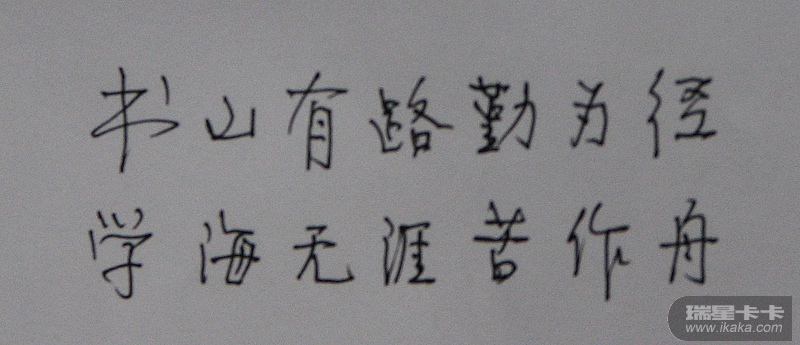 书山有路勤为径
学海无涯苦作舟
瑞星卡卡
www.ikaka.com